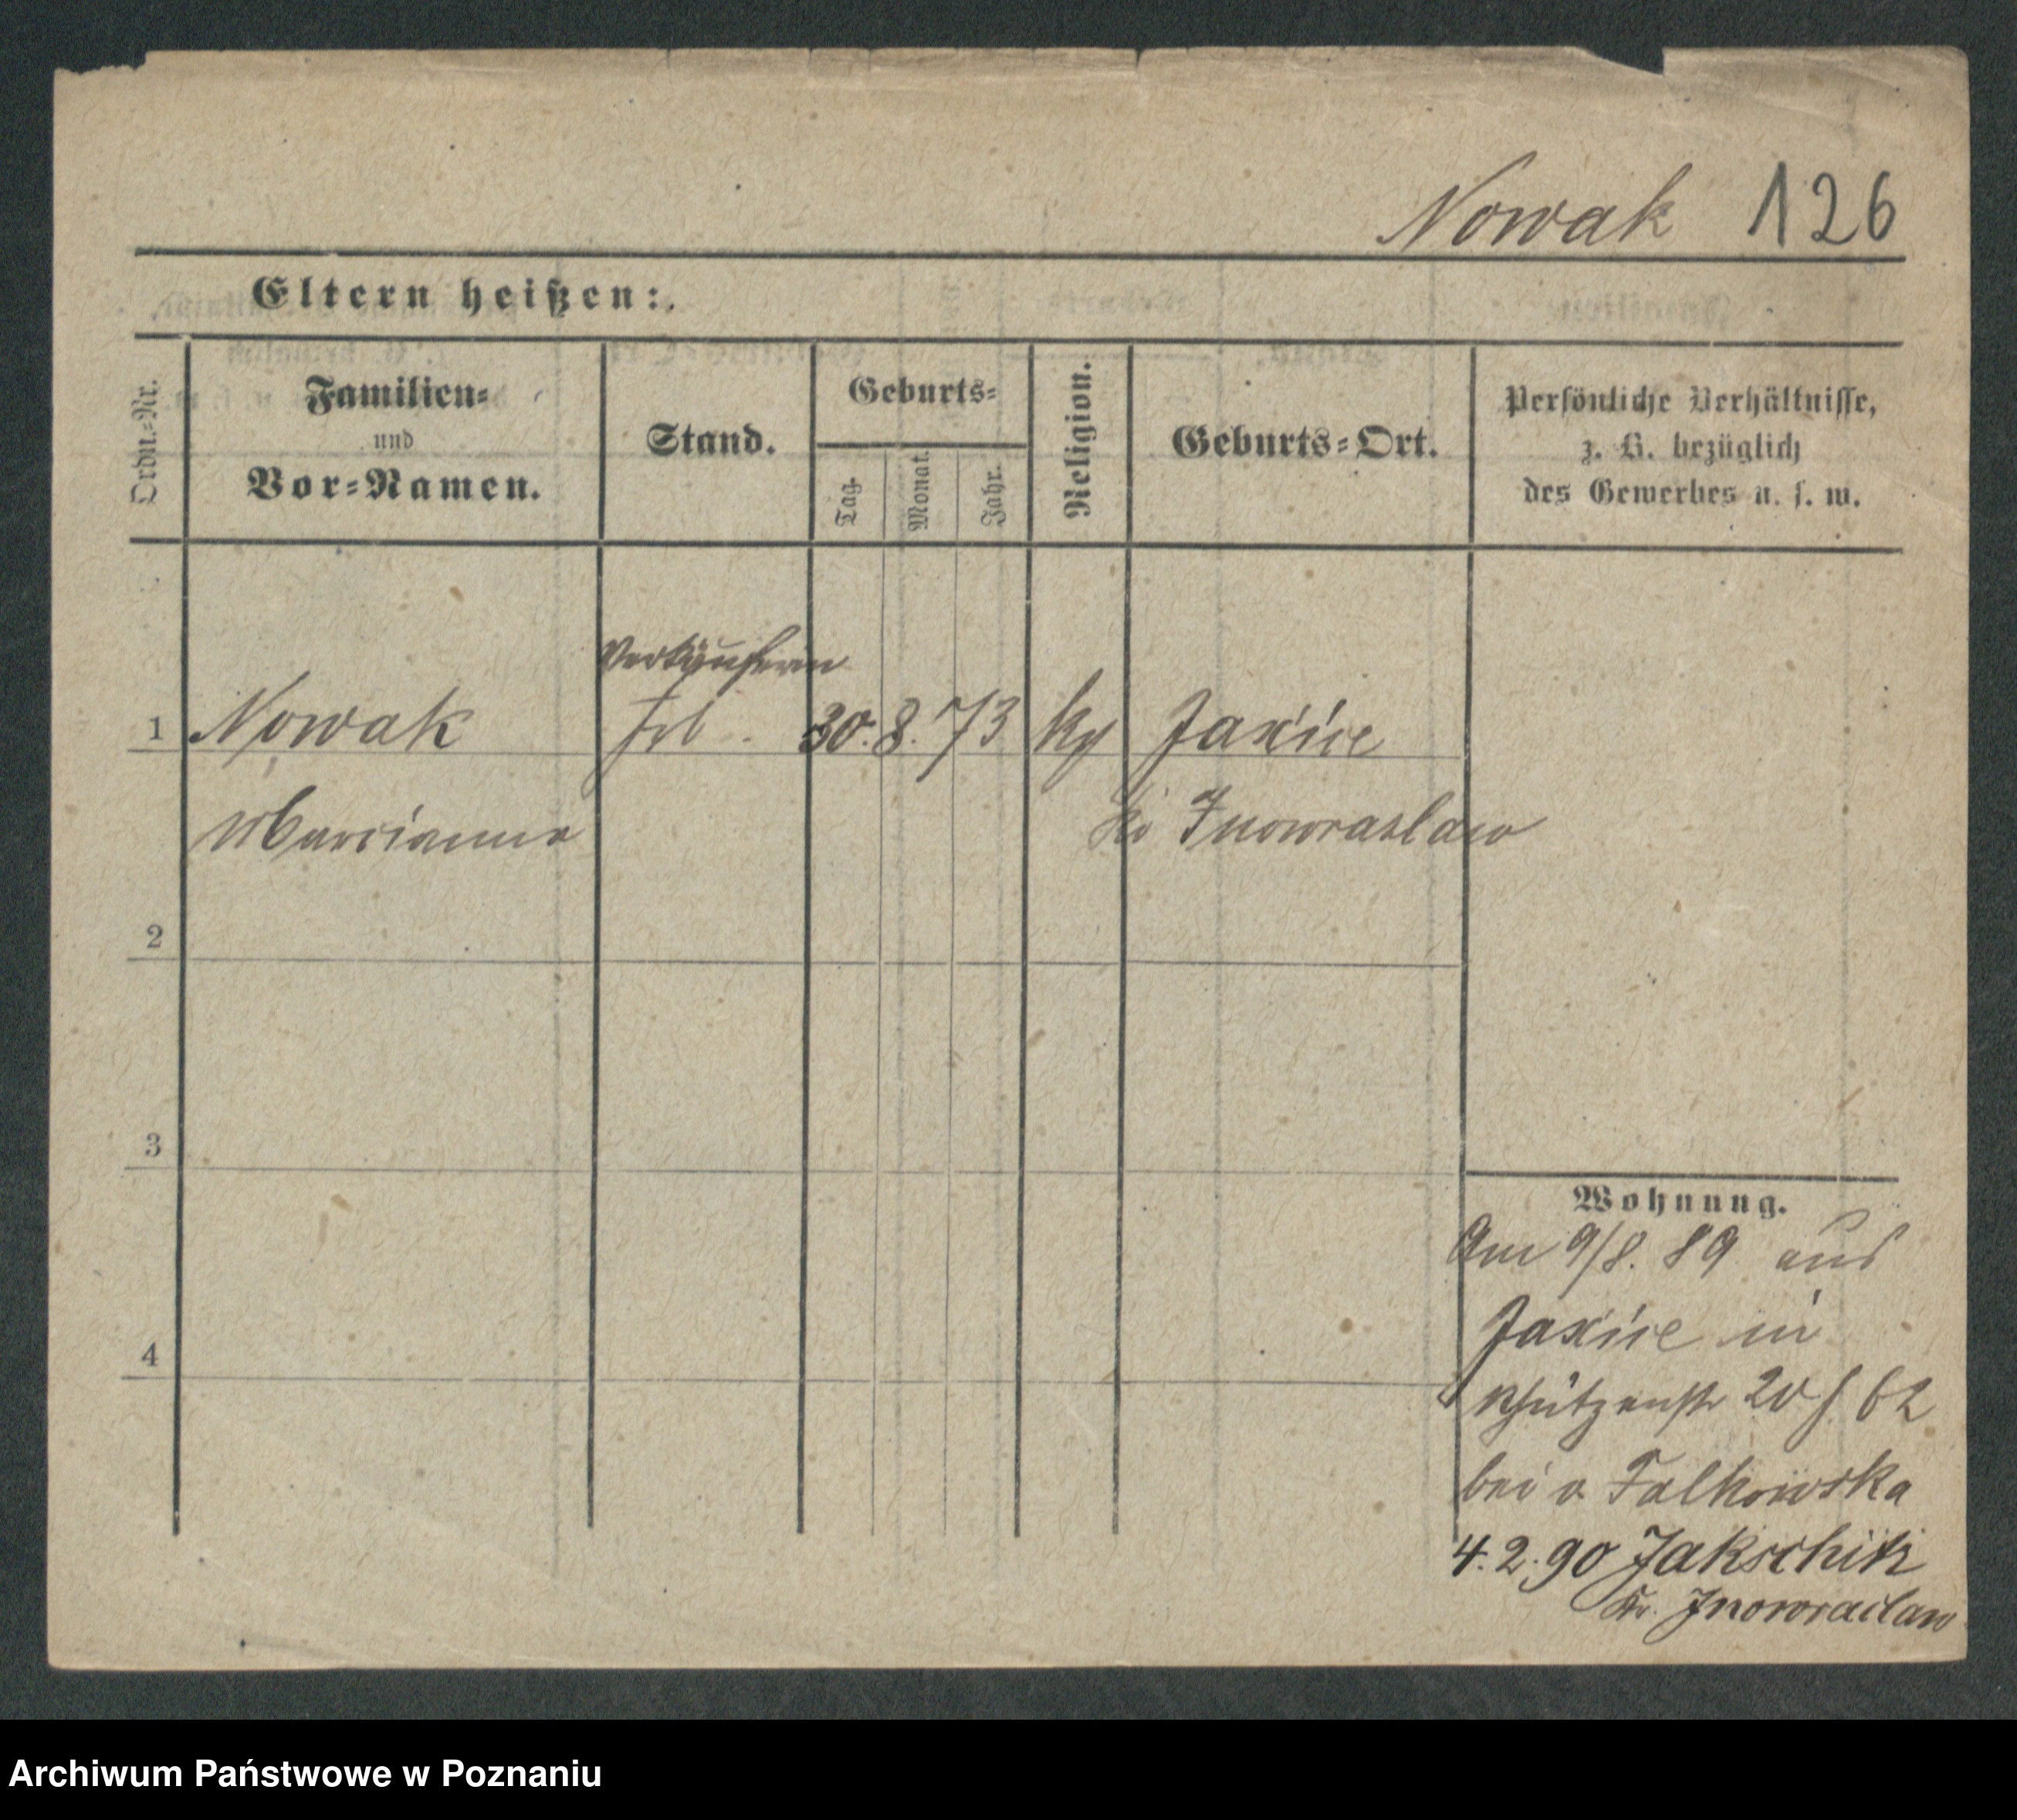 Nowak 126
Eltern heißen:
Ordn.-Nr.
Familien-
und
Vor-Namen.
Stand.
Geburts-
Tag.
Monat.
Jahr.
Religion.
Geburts-Ort.
Persönliche Verhältnisse,
z. B. bezüglich
des Gewerbes u. s. w.
Verkäuferin
1 Nowak frl. 30. 8. 73 Jaxice
Marcianna Kr Inowrazlaw
2
3
4
Wohnung.
Am 9/8. 89 aus
Jaxice in
Schützenstr 20
bei v. Falkowska
4. 2. 90 Jakschitz
Kr. Inowraclaw
Archiwum Państwowe w Poznaniu